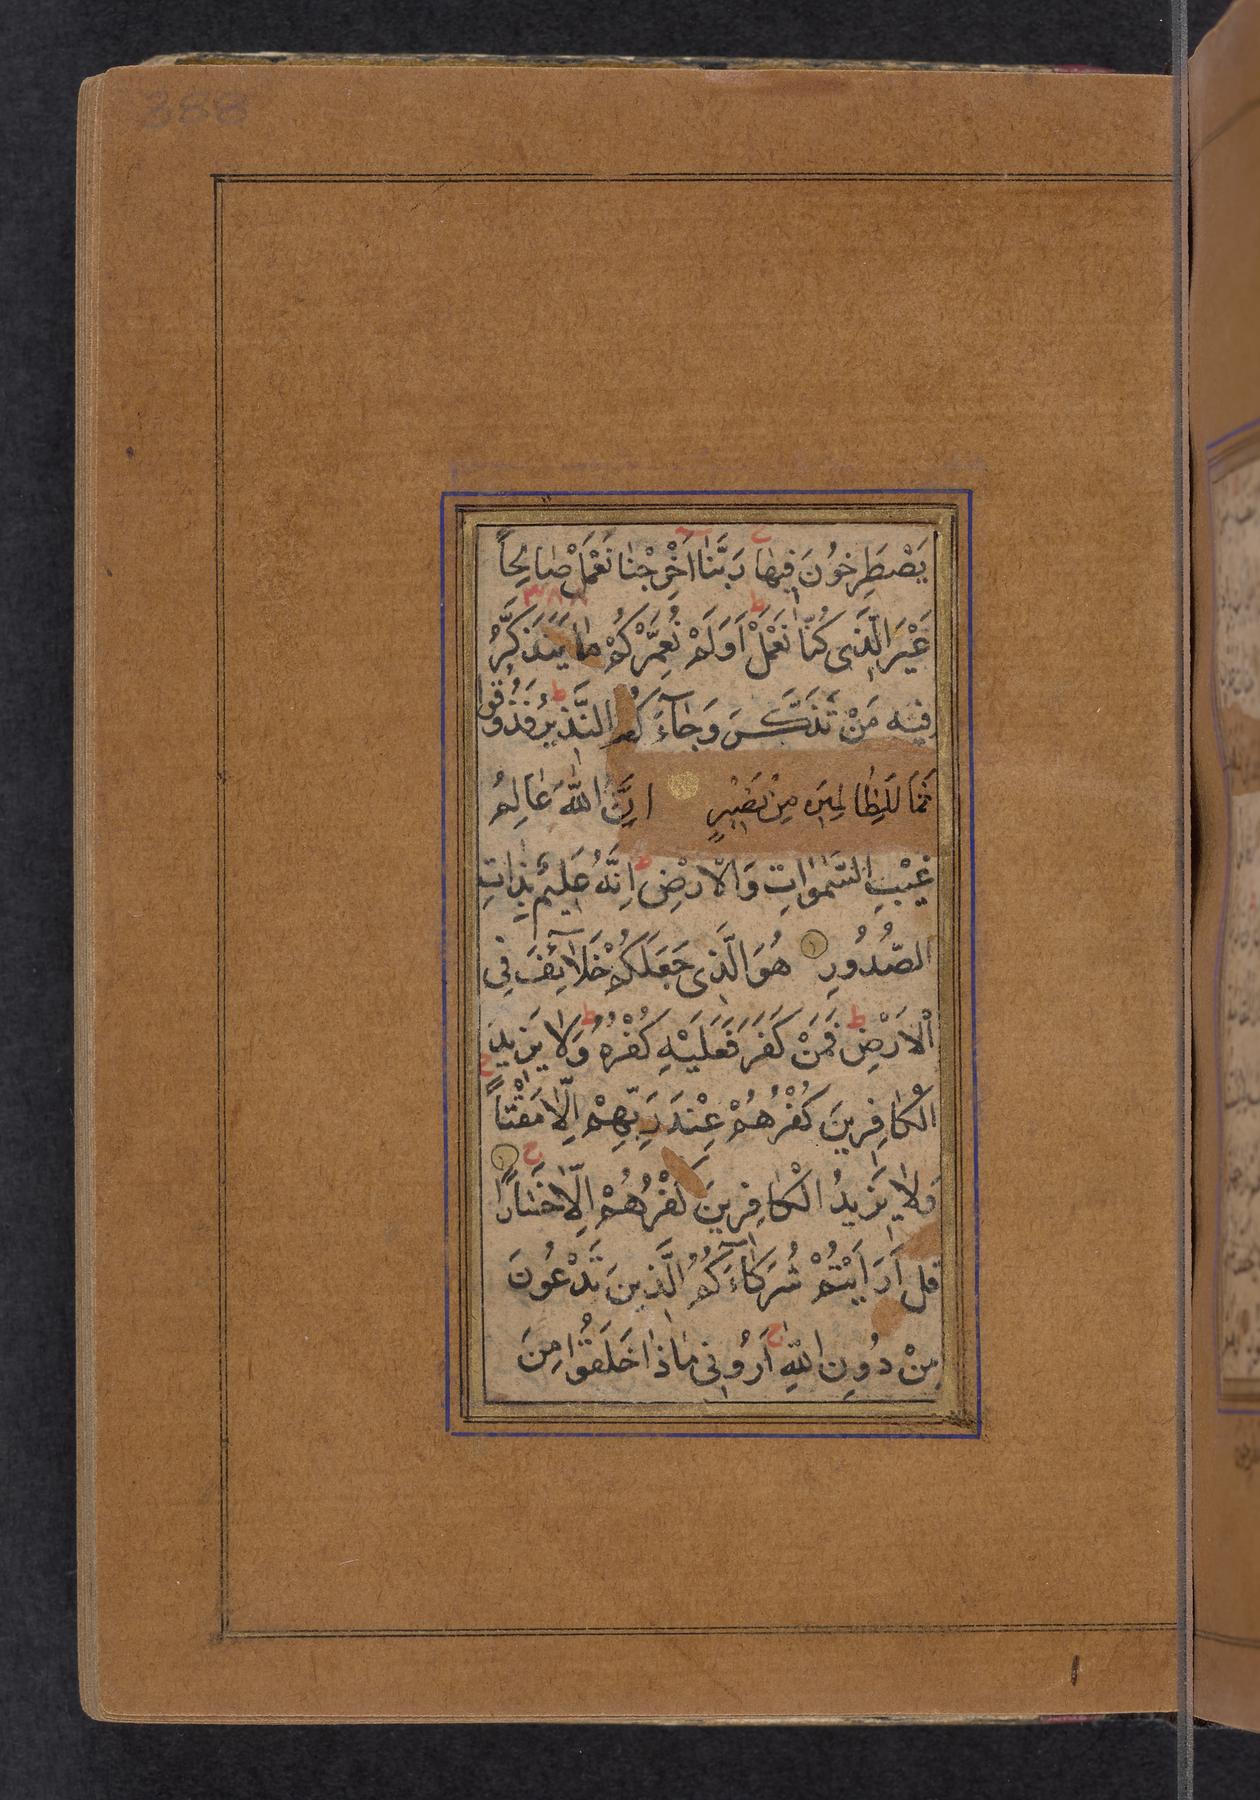 388
يَصْطَرِخُونَ فِيهَا رَبَّنَا اَخْرِجْنَا نَعْمَلْ صَالِحًا
٣٨٨
غَيْرَ الَّذِى كُنَّا نَعْمَلْ اَوَلَمْ نُعَمِّرْكُمْ مَا يَتَذَكَّرُ
فِيهِ مَنْ تَذَكَّرَ وَجَآءَكُمُ النَّذِيرُ فَذُوقُوا
فَمَا لِلظَّالِمِينَ مِنْ نَصِيرٍ اِنَّ اللّٰهَ عَالِمُ
غَيْبِ السَّمٰوَاتِ وَالْاَرْضِ اِنَّهُ عَلِيمٌ بِذَاتِ
الصُّدُورِ هُوَ الَّذِى جَعَلَكُمْ خَلَآئِفَ فِى
الْاَرْضِ فَمَنْ كَفَرَ فَعَلَيْهِ كُفْرُهُ وَلَا يَزِيدُ
الْكَافِرِينَ كُفْرُهُمْ عِنْدَ رَبِّهِمْ اِلَّا مَقْتًا
وَلَا يَزِيدُ الْكَافِرِينَ كُفْرُهُمْ اِلَّا خَسَارًا
قُلْ اَرَاَيْتُمْ شُرَكَآءَكُمُ الَّذِينَ تَدْعُونَ
مِنْ دُونِ اللّٰهِ اَرُونِى مَاذَا خَلَقُوا مِنَ